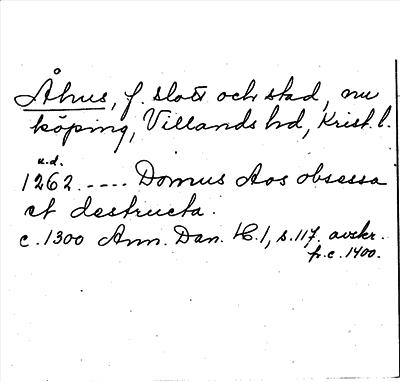 Åhus, f. slott och stad, nu
köping, Villands hd, Krist. l.
u.d.
1262. ---- Domus Aos obsessa
et destructa.
c. 1300 Ann. Dan. H. 1, s. 117. avskr.
fr. c. 1400.